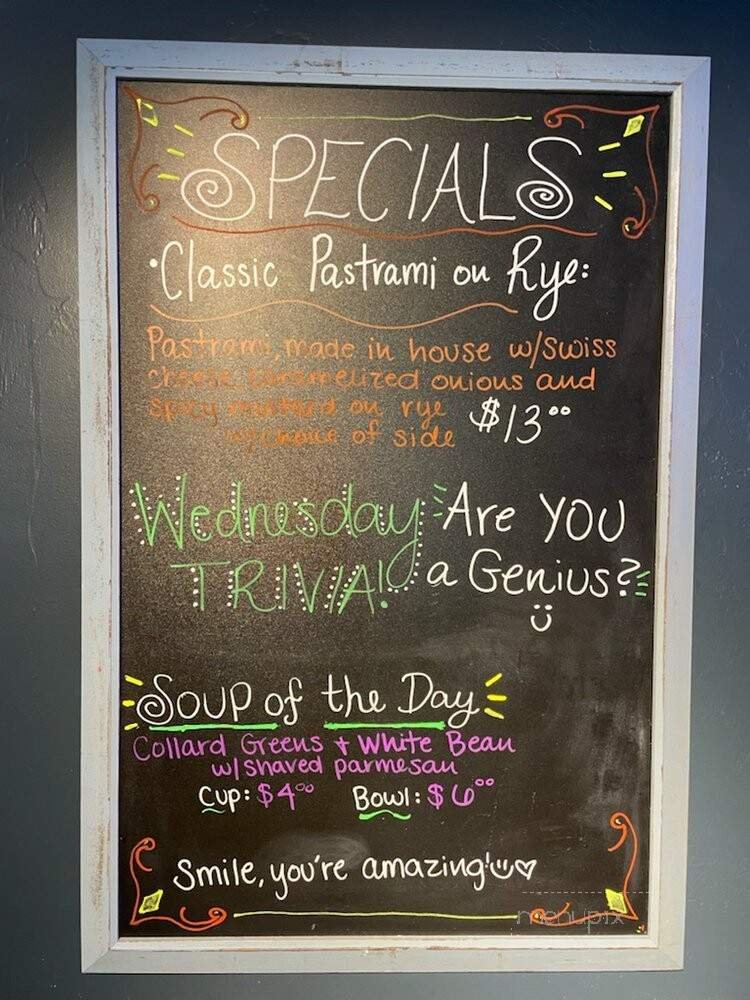 SPECIALS
·Classic Pastrami on Rye:
Pastrami, made in house w/Swiss
cheese caramelized onions and
spicy mustard on rye $13⁰⁰
w/choice of side
Wednesday Are YOU
TRIVIA! a Genius?
Soup of the Day
Collard Greens + White Bean
w/shaved parmesan
Cup: $4⁰⁰ Bowl: $6⁰⁰
Smile, you're amazing!
menupix